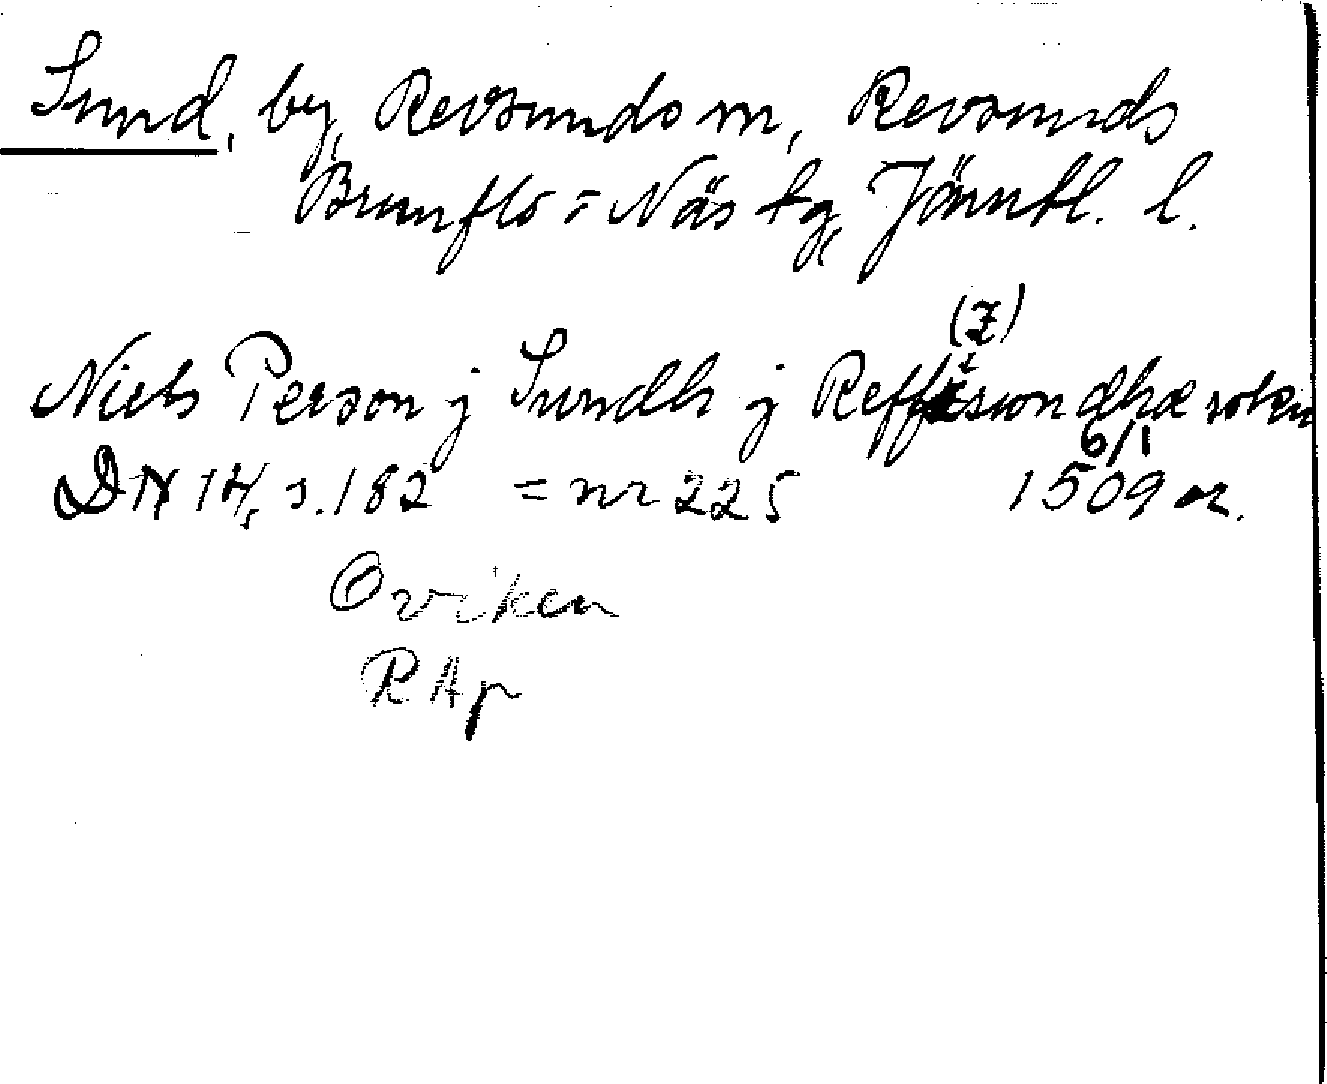 Sund, by, Revsunds sn, Revsunds
Brunflo = Näs tg, Jämtl. l.
(Z)
Niels Person j Sundh j Reffsszundhæ sokn
6/1
DN 14, s. 182 = nr 225 1509 or.
Oviken
RAp